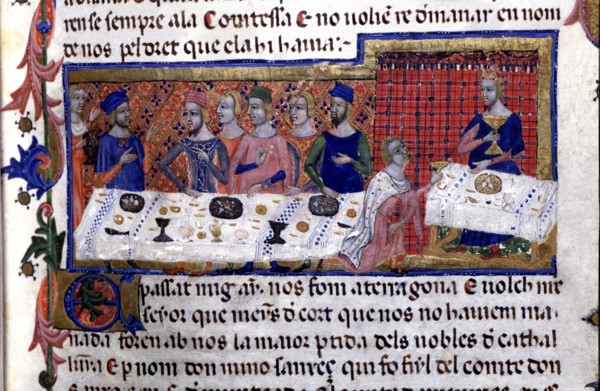 rense sempre ala Comtessa E no volien re dmanar en nom
de nos pel dret que ela hi hauia:-
E passat mig añ. nos fom aterragona E volch nre
seyor que meñs d cort que nos no hauiem ma
nada foren ab nos la maior ptida dels nobles d cathal
E p nom don nuno sanxeç qui fo fiyl del comte don